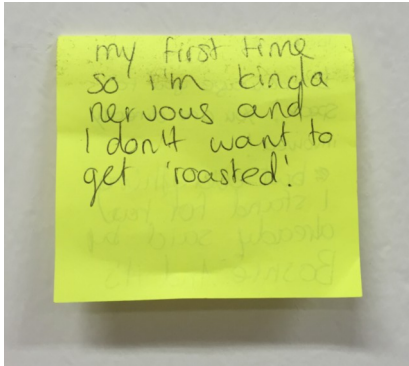 my first time
so i'm kinda
nervous and
I don't want to
get 'roasted'.